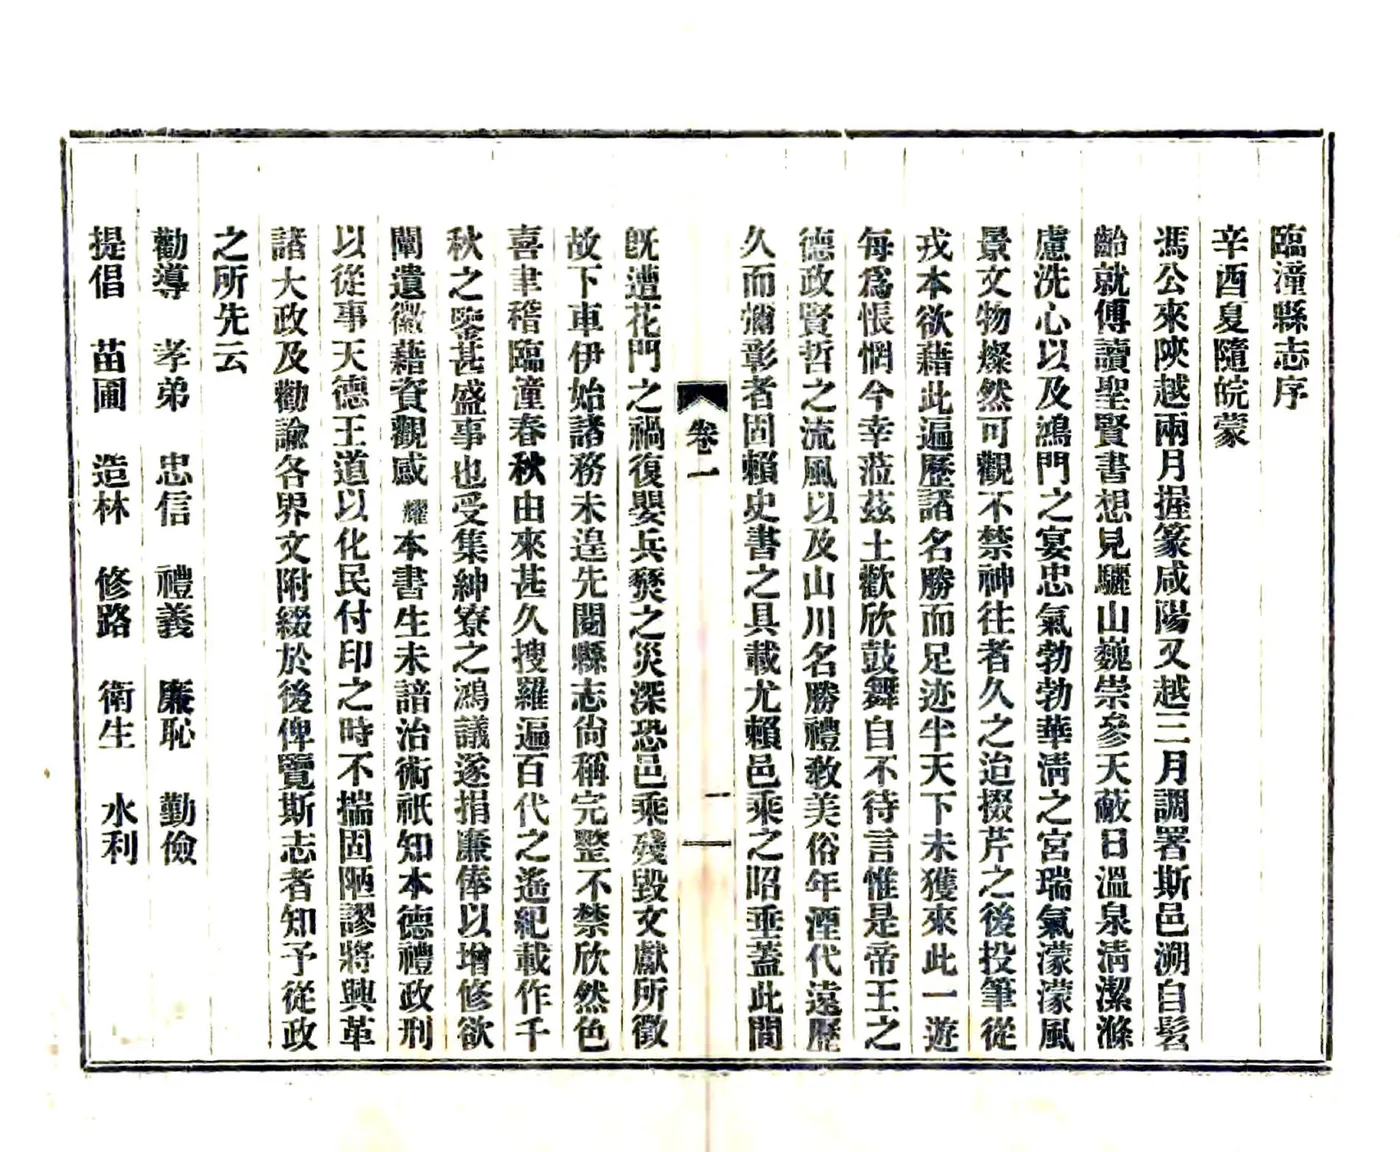 臨潼縣志序
辛酉夏隨皖蒙
馮公來陝越兩月握篆咸陽又越三月調署斯邑溯自髫
齡就傅讀聖賢書想見驪山巍崇參天蔽日溫泉清潔滌
慮洗心以及鴻門之宴忠氣勃勃華清之宮瑞氣濛濛風
景文物燦然可觀不禁神往者久之迨掇芹之後投筆從
戎本欲藉此遍歷諸名勝而足迹半天下未獲來此一遊
每爲悵惘今幸蒞茲土歡欣鼓舞自不待言惟是帝王之
德政賢哲之流風以及山川名勝禮敎美俗年湮代遠歷
久而彌彰者固賴史書之具載尤賴邑乘之昭垂蓋此間
卷一
一
旣遭花門之禍復嬰兵燹之災深恐邑乘殘毀文獻所徵
故下車伊始諸務未遑先閱縣志尙稱完整不禁欣然色
喜聿稽臨潼春秋由來甚久搜羅遍百代之遙紀載作千
秋之鑒甚盛事也受集紳寮之鴻議遂捐廉俸以增修欲
闡遺徽藉資觀感耀本書生未諳治術祇知本德禮政刑
以從事天德王道以化民付印之時不揣固陋謬將興革
諸大政及勸諭各界文附綴於後俾覽斯志者知予從政
之所先云
勸導 孝弟 忠信 禮義 廉恥 勤儉
提倡 苗圃 造林 修路 衛生 水利